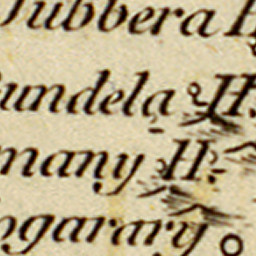 Jubbera H
undela H.
many H.
ogarary